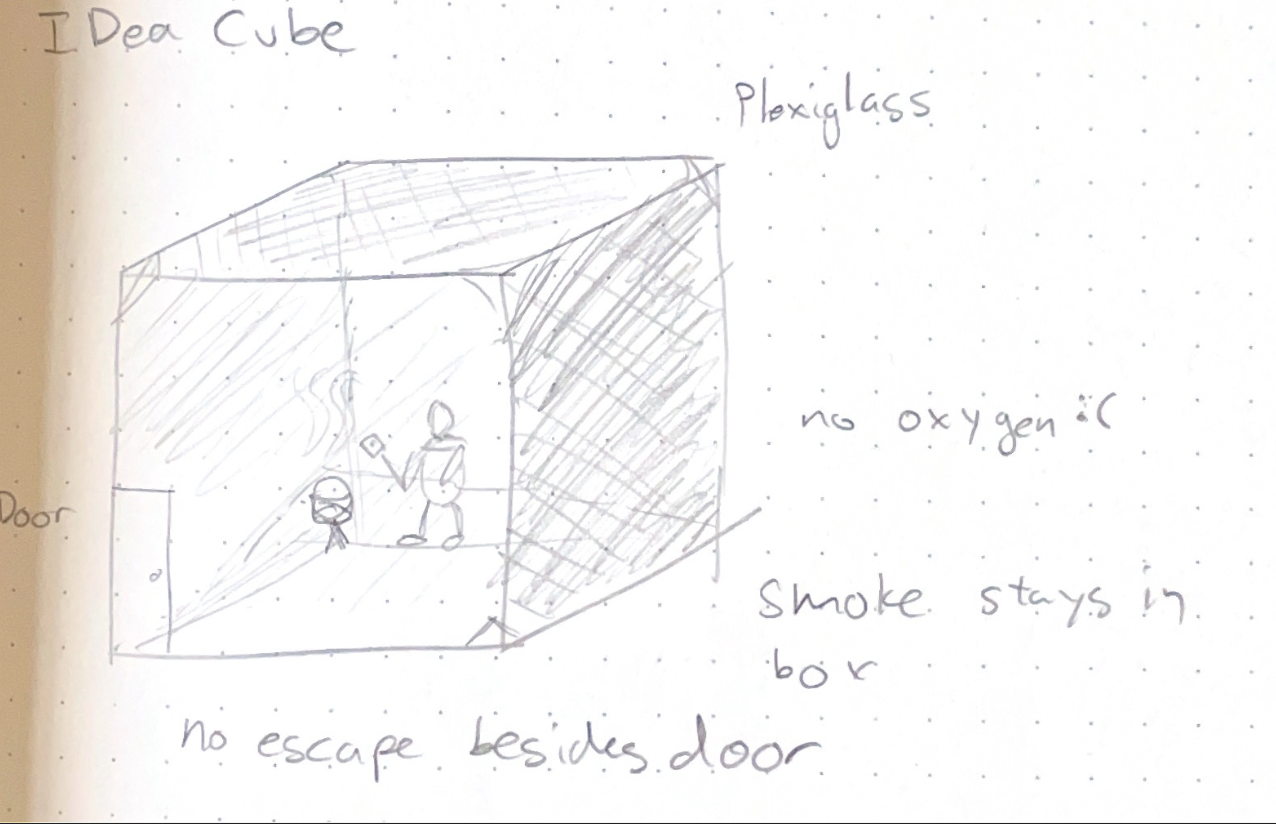 IDea Cube
Plexiglass
no oxygen :(
Door
smoke stays in
box
no escape besides door